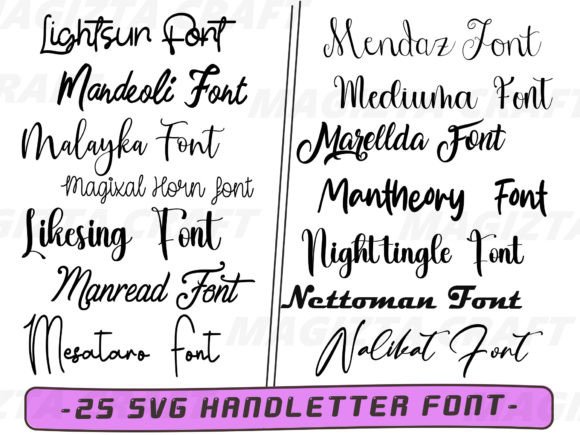 Lightsun Font
Mandeoli Font
Malayka Font
Magixal Horn font
Likesing Font
Manread Font
Mesataro Font
Mendaz Font
Mediuma Font
Marellda Font
Mantheory Font
Nighttingle Font
Nettoman Font
Nalikat Font
-25 SVG HANDLETTER FONT-
MAGIZTA CRAFT